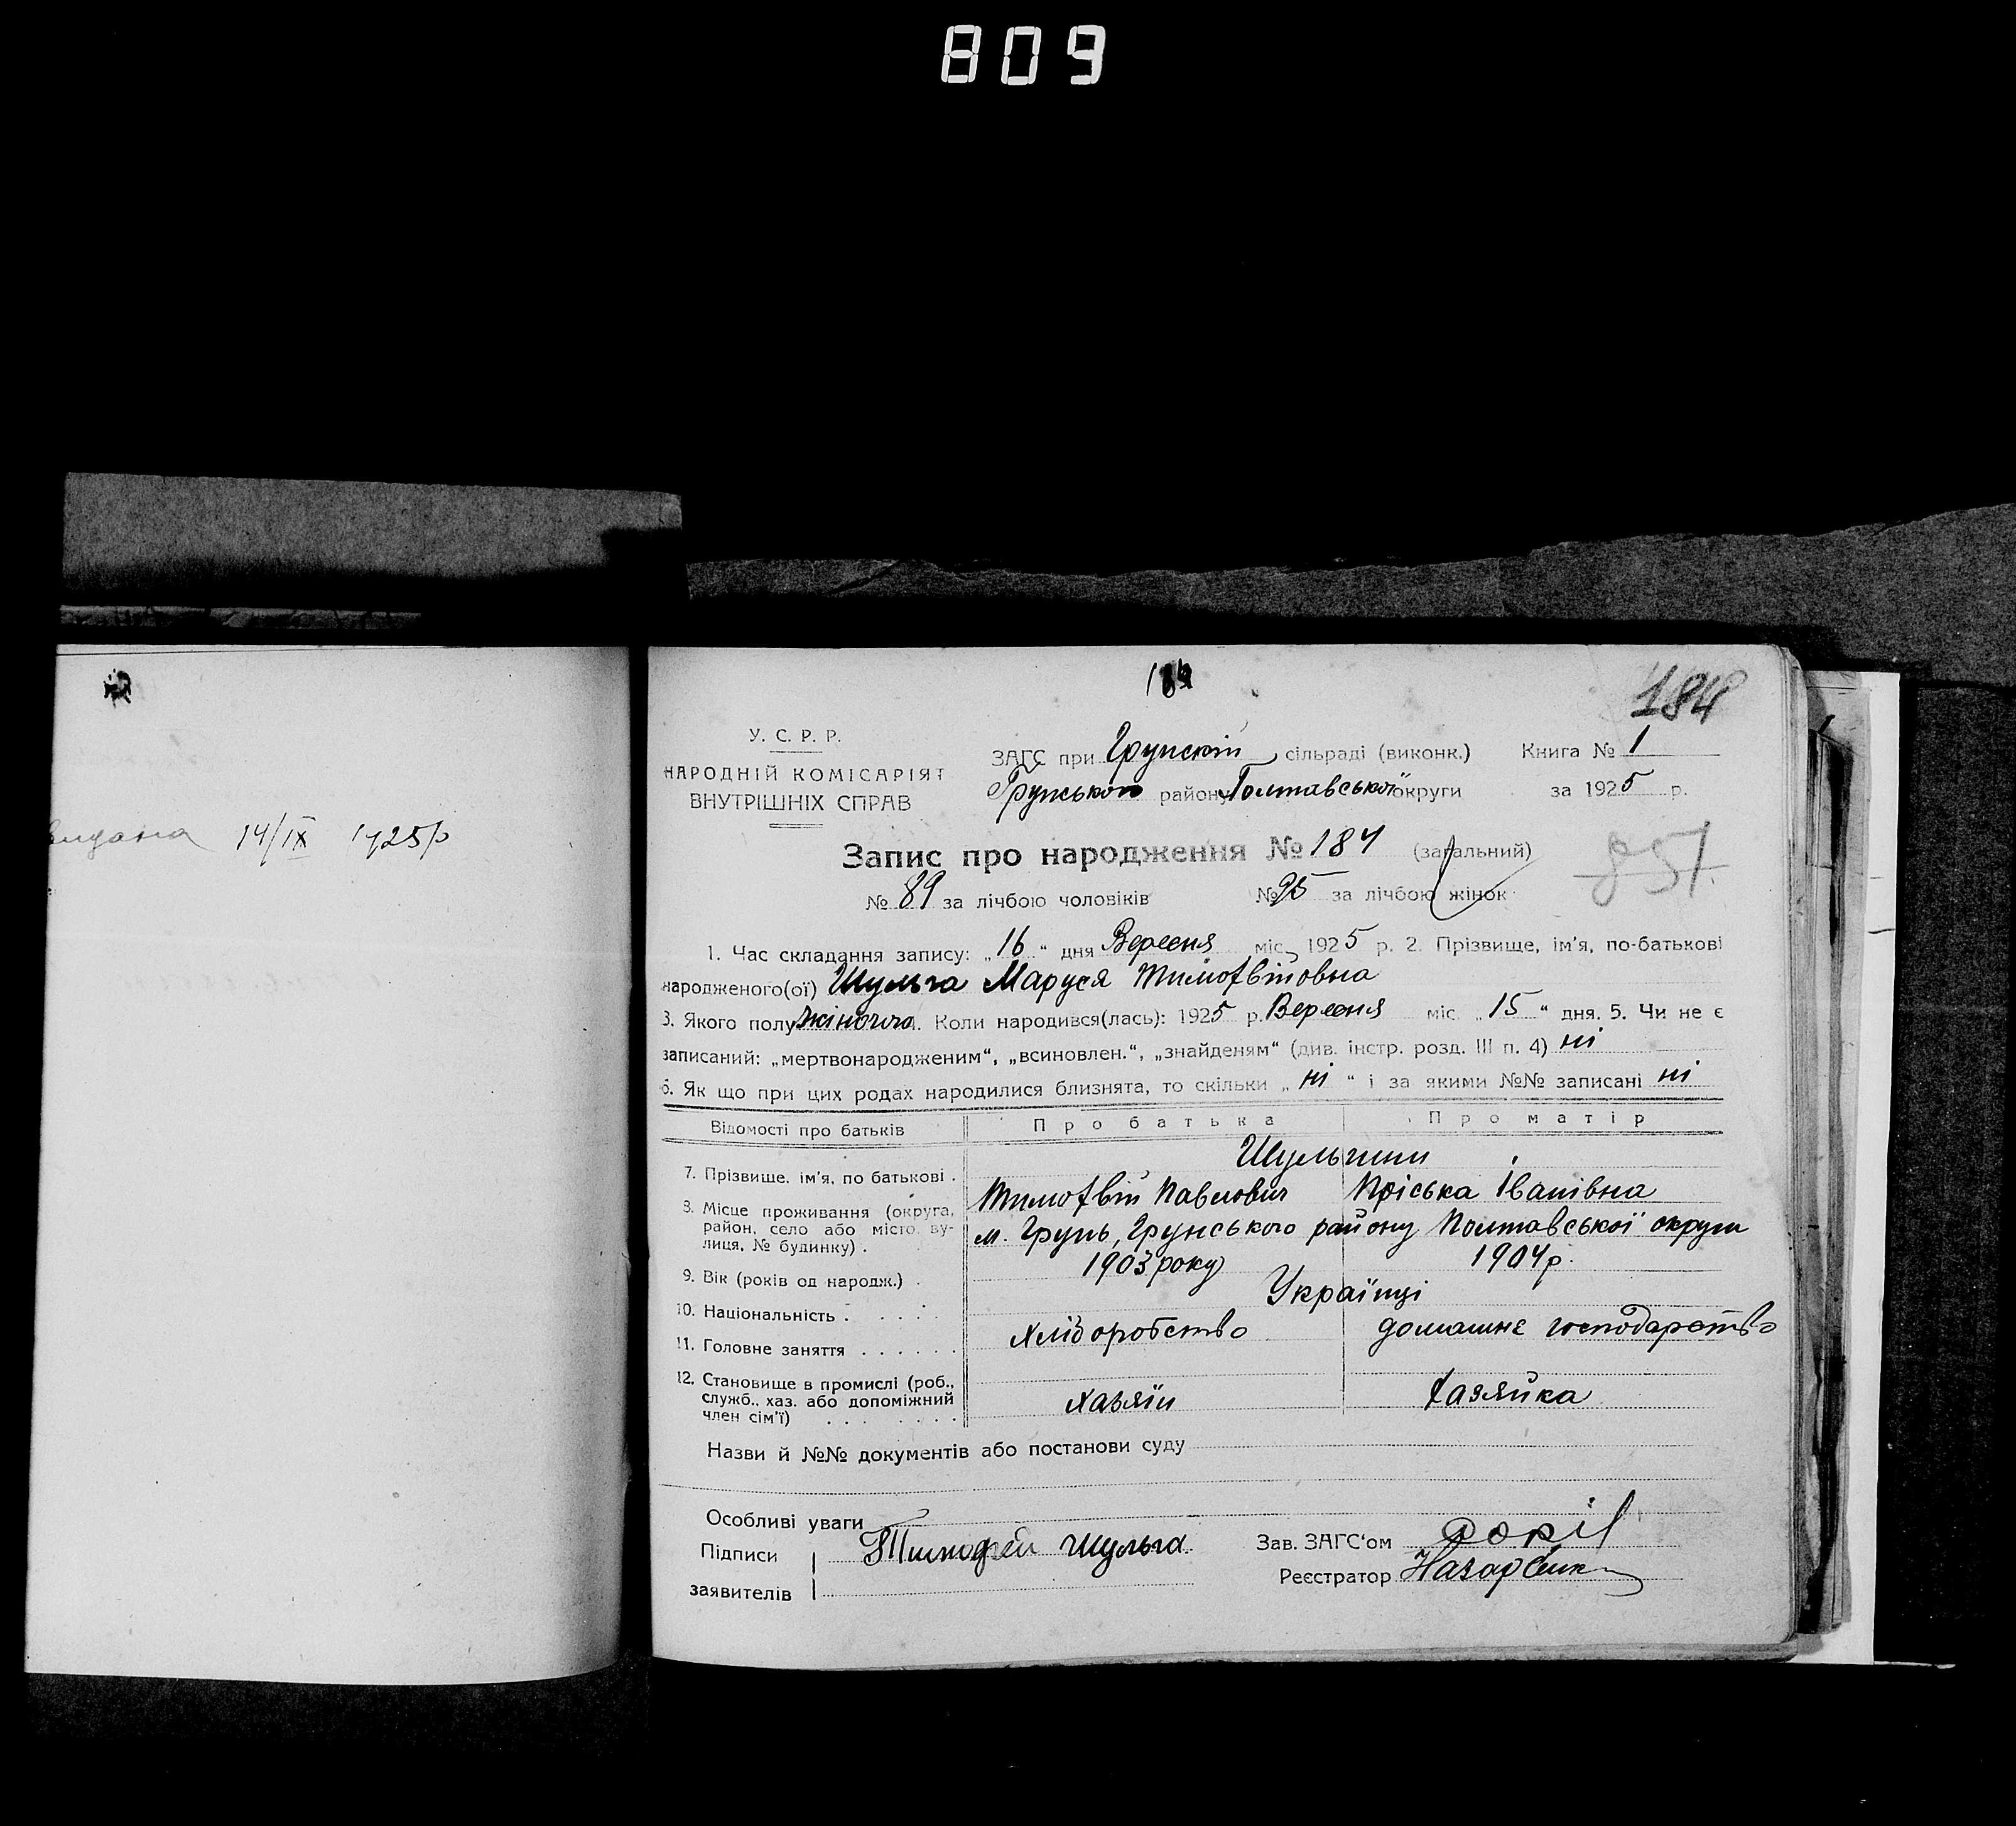 809
184
184
видана 14/IX 1925р
У. С. Р. Р.
НАРОДНІЙ КОМІСАРІЯТ
ВНУТРІШНІХ СПРАВ
ЗАГС при Грунскій сільраді (виконк.) Книга № 1
Грунського району Полтавської округи за 1925 р.
Запис про народження № 184 (загальний)
№ 89 за лічбою чоловіків № 95 за лічбою жінок
851
1. Час складання запису: „16“ дня Вересня міс. 1925 р. 2. Прізвище, ім'я, по-батькові
народженого(ої) Шульга Маруся Тимофвіїовна
3. Якого полу жіночого. Коли народився(лась): 1925 р. Вересня міс. „15“ дня. 5. Чи не є
записаний: „мертвонародженим“, „всиновлен.“, „знайденям“ (див. інстр. розд. III п. 4) ні
6. Як що при цих родах народилися близнята, то скільки „ні“ і за якими №№ записані ні
Відомості про батьків Про батька Про матір
Шульгини
7. Прізвище, ім'я, по батькові . Тимофвій Павлович Пріська Іванівна
8. Місце проживання (округа, район, село або місто, вулиця, № будинку) . м. Грунь, Грунського району Полтавської округи
9. Вік (років од народж.) . 1903 року 1904 р.
10. Національність . . . . . Українці
11. Головне заняття . . . . . . хліборобство домашнє господарство
12. Становище в промислі (роб., служб., хаз. або допоміжний член сім'ї) . . . . . . . хазяїн хазяйка
Назви й №№ документів або постанови суду
Особливі уваги
Підписи Тимофей Шульга Зав. ЗАГС'ом
заявителів Реєстратор Назаренко